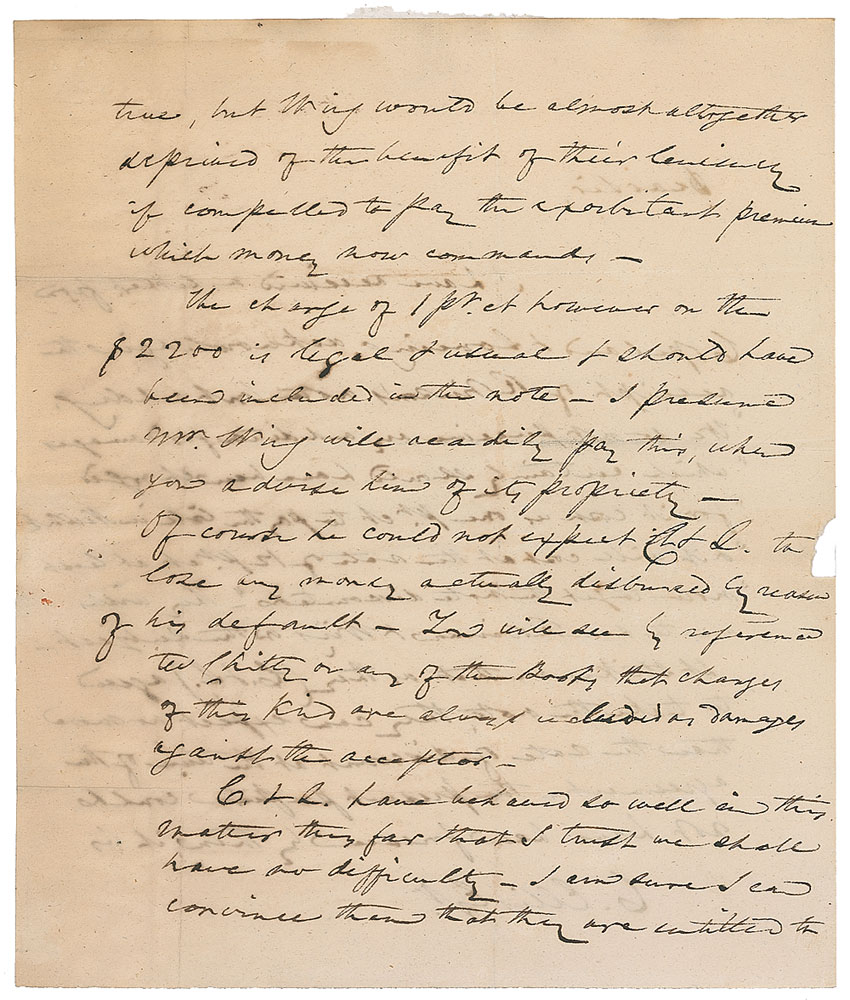 true, but Wing would be almost altogether
deprived of the benefit of their leniency
if compelled to pay the exorbitant premium
which money now commands –
The charge of 1 pr. ct however on the
$2200 is legal & usual & should have
been included in the note – I presume
Mr. Wing will readily pay this, when
you advise him of its propriety –
Of course he could not expect C & L. to
lose any money actually disbursed by reason
of his default – You will see by reference
to Chitty or any of the Books that charges
of this kind are always included as damages
against the acceptor –
C. & L. have behaved so well in this
matter thus far that I trust we shall
have no difficulty – I am sure I can
convince them that they are entitled to